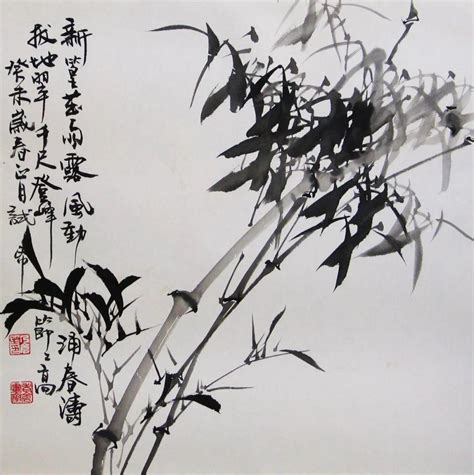 新篁雨露風動
涌春濤
拔地翠千尺登峰
節々高
癸未歲春正月試